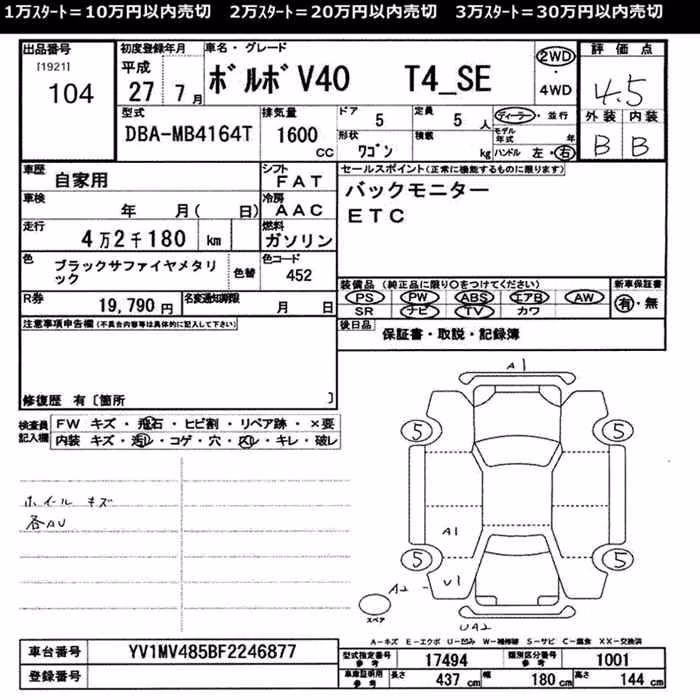 1万ｽﾀｰﾄ＝10万円以内売切　2万ｽﾀｰﾄ＝20万円以内売切　3万ｽﾀｰﾄ＝30万円以内売切
出品番号
[1921]
104
初度登録年月
平成
27 7 月
車名・グレード
ﾎﾞﾙﾎﾞ V40 T4_SE
2WD
・
4WD
評価点
4.5
外装 内装
B B
型式
DBA-MB4164T
排気量
1600
cc
ドア
5
定員
5 人
形状
ﾜｺﾞﾝ
積載
kg
ディーラー・並行
モデル年式 年
ハンドル 左・右
車歴
自家用
シフト
FAT
車検
年 月( 日)
冷房
AAC
走行
4万2千180 km
燃料
ガソリン
色
ブラックサファイヤメタリック
色替
色コード
452
R券
19,790 円
名変通知期限
月 日
セールスポイント(正常に機能するものに限ります)
バックモニター
ETC
装備品 (純正品に限り○をつけてください)
PS PW ABS エアB AW
SR ナビ TV カワ
新車保証書
有・無
後日品
保証書・取説・記録簿
注意事項申告欄(不具合内容等は具体的に記入して下さい)
修復歴 有〔箇所 〕
検査員記入欄
FW キズ・飛石・ヒビ割・リペア跡・×要
内装 キズ・汚レ・コゲ・穴・スレ・キレ・破レ
ホイール キズ
各AU
A1
5
5
A1
5
5
A2
U1
スペア
UA2
A-キズ E-エクボ U-凹み W-補修跡 S-サビ C-腐食 XX-交換済
車台番号
YV1MV485BF2246877
登録番号
型式指定番号
参考
17494
類別区分番号
参考
1001
車庫証明用
参考
長さ
437 cm
幅
180 cm
高さ
144 cm